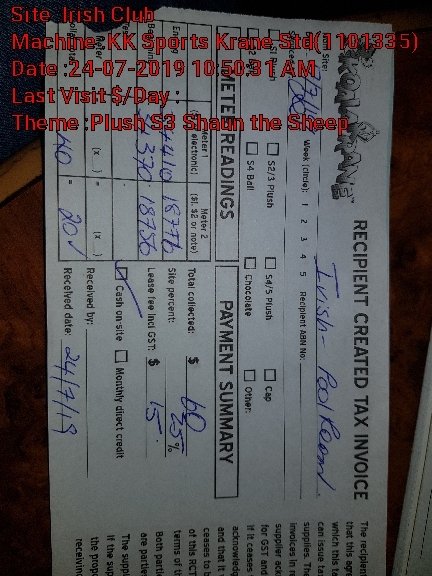 Site :Irish Club
Machine: KK Sports Krane Std(1101335)
Date :24-07-2019 10:50:31 AM
Last Visit $/Day :
Theme :Plush S3 Shaun the Sheep
KOALA KRANE
RECIPIENT CREATED TAX INVOICE
Site:
Irish - Pool Room
Week (circle): 1 2 3 4 5 Recipient ABN No:
S2/3 Plush
S4/5 Plush
Cap
S4 Ball
Chocolate
Other:
METER READINGS
PAYMENT SUMMARY
Meter 1
Meter 2
($1, $2 or note)
18776
18756
(x )
= (x )
40 = 20 ✓
Total collected: $ 60
Site percent: 25 %
Lease fee incl GST: $ 15.
✓ Cash on-site
Monthly direct credit
Received by:
Received date: 24/7/19
The recipient
that this ag
which this ta
can issue ta
supplies. The
invoices in r
supplier ack
for GST and
if it ceases
acknowled
and that it
ceases to b
of this RCT
terms of th
Both parti
are partie
The suppl
if the sup
the prop
receiving